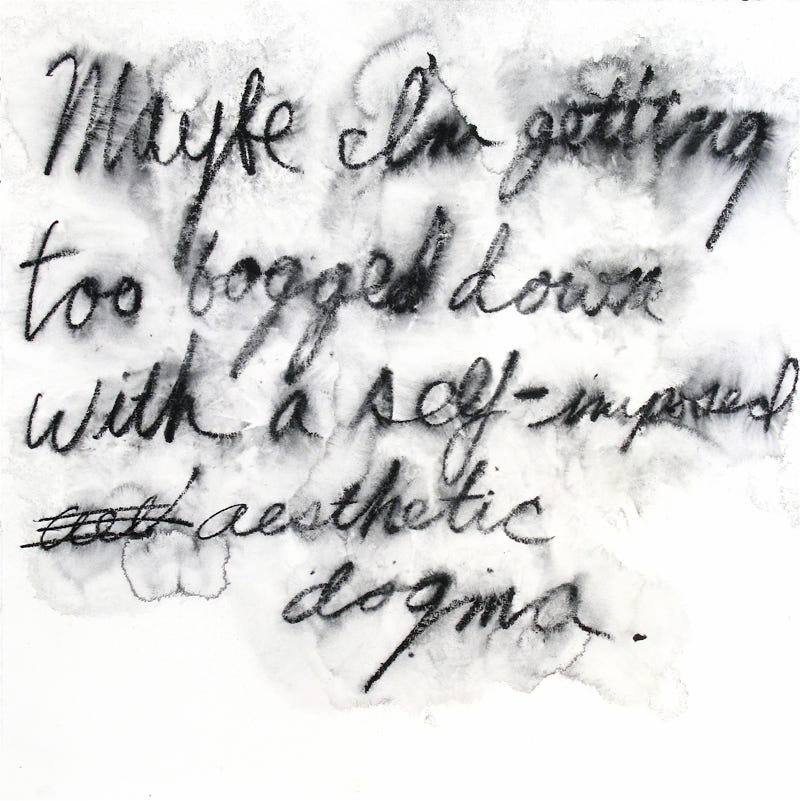 Maybe I'm getting
too bogged down
with a self-imposed
aesthetic
dogma.